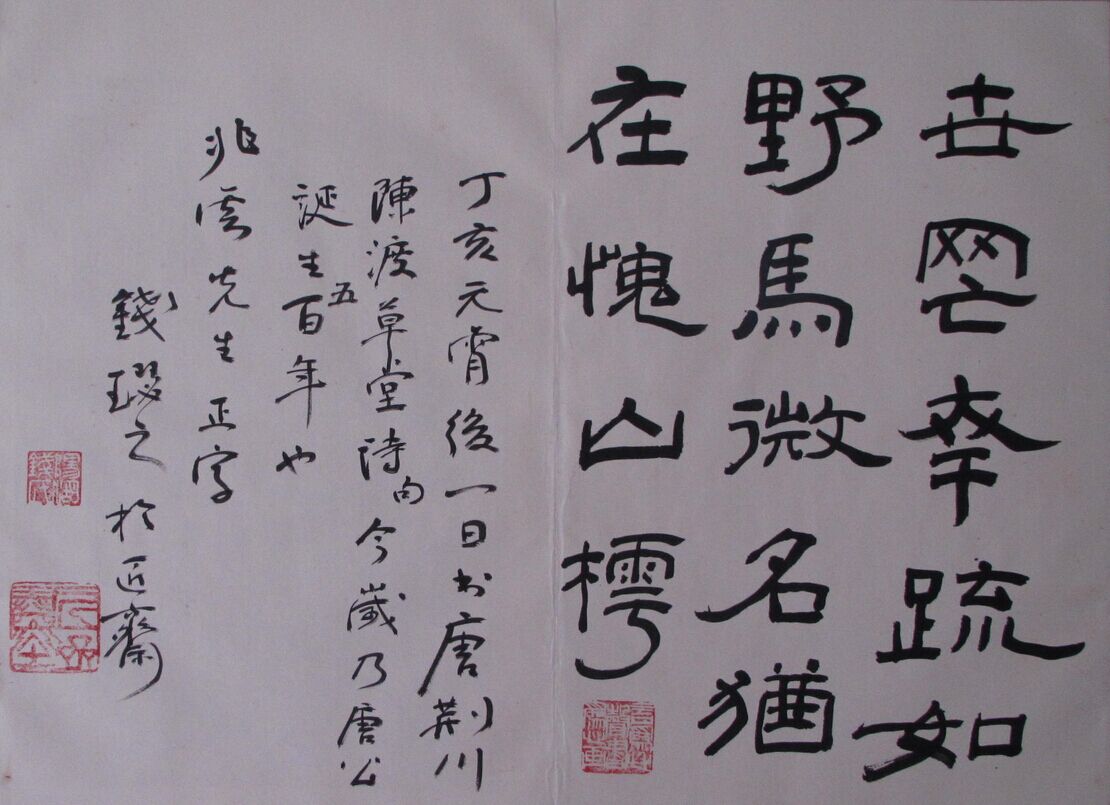 世罔幸疏如
野馬微名猶
在愧山樗
丁亥元宵後一日书唐荊川
陳渡草堂詩句今歲乃唐公
誕生五百年也
兆雲先生正字
錢璱之於齋